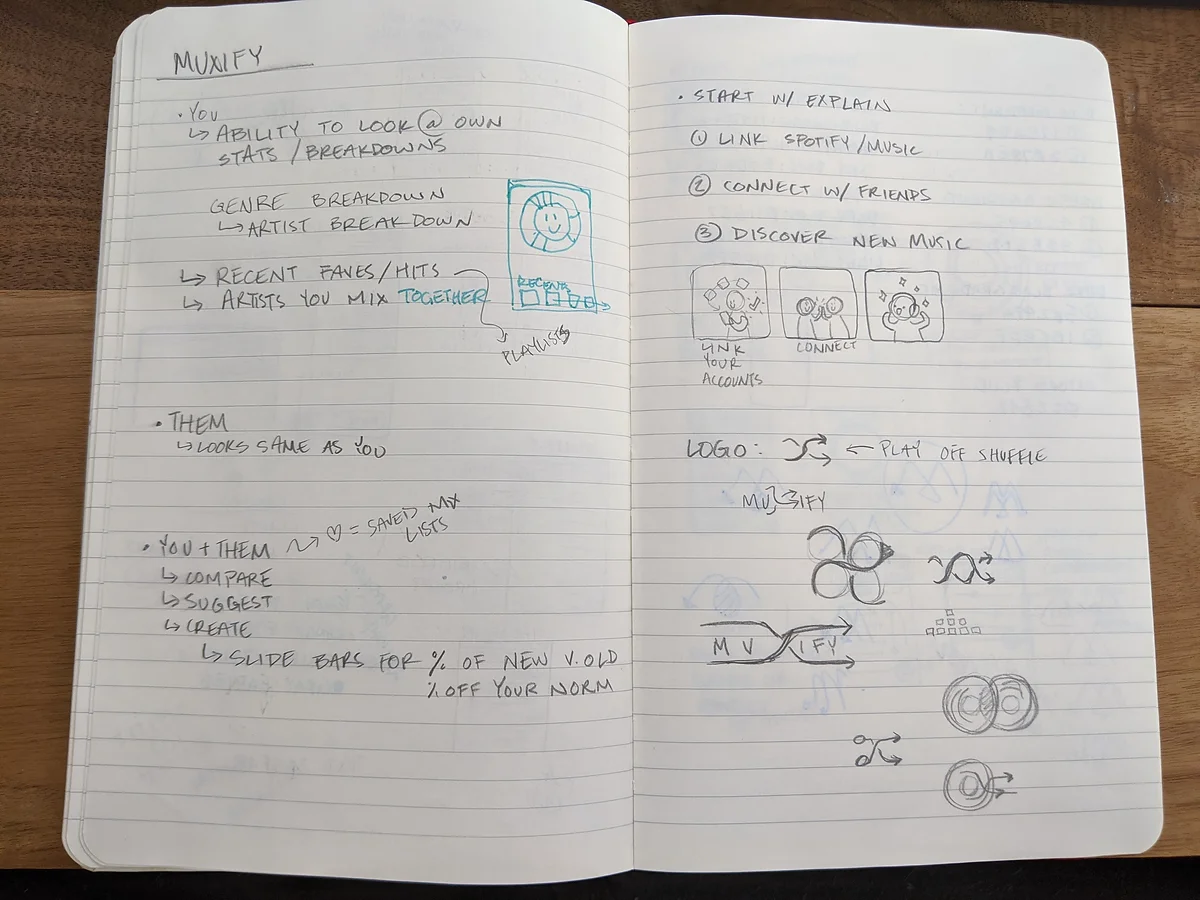 MUXIFY
• YOU
↳ ABILITY TO LOOK @ OWN
STATS / BREAKDOWNS
GENRE BREAKDOWN
↳ ARTIST BREAKDOWN
↳ RECENT FAVES/HITS
↳ ARTISTS YOU MIX TOGETHER
PLAYLISTS
RECENT
• THEM
↳ LOOKS SAME AS YOU
♡ = SAVED MX
LISTS
• YOU + THEM
↳ COMPARE
↳ SUGGEST
↳ CREATE
↳ SLIDE BARS FOR % OF NEW V. OLD
% OFF YOUR NORM
• START W/ EXPLAIN
① LINK SPOTIFY/MUSIC
② CONNECT W/ FRIENDS
③ DISCOVER NEW MUSIC
LINK
YOUR
ACCOUNTS
CONNECT
LOGO: ← PLAY OFF SHUFFLE
MU IFY
M U IFY